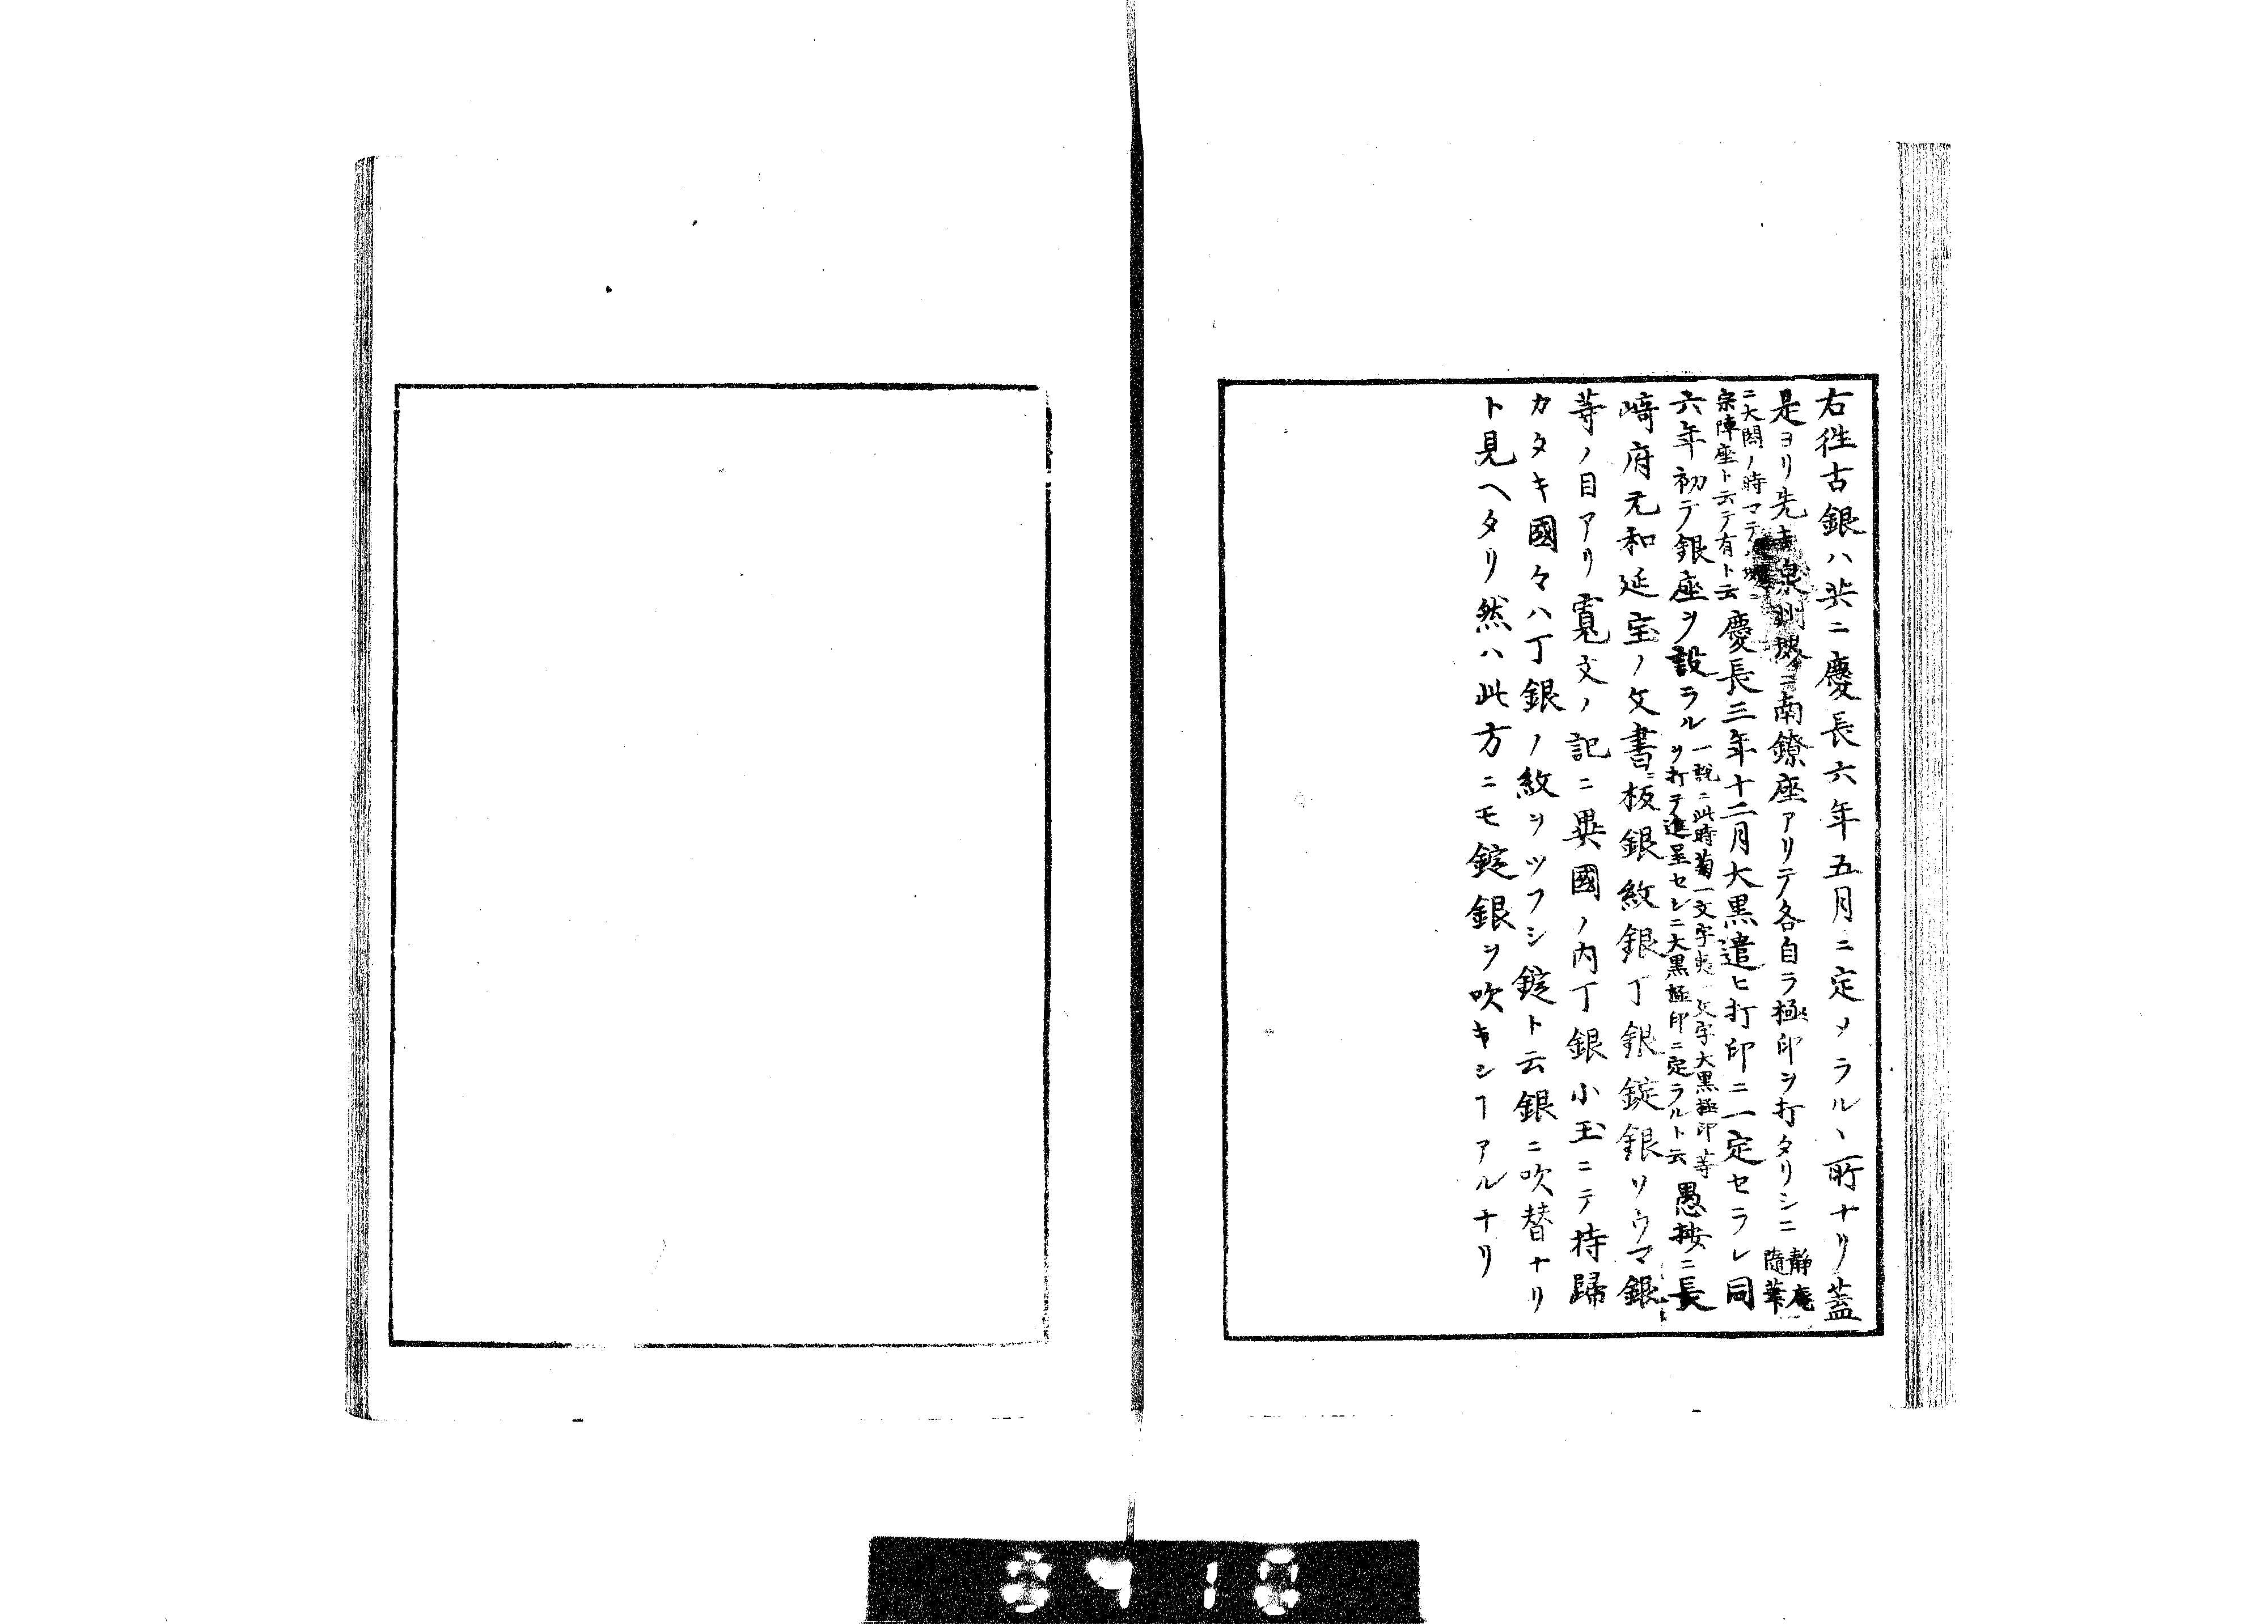 右徃古銀ハ共ニ慶長六年五月ニ定メラルヽ所ナリ蓋
是ヨリ先 泉州堺ニ南鐐座アリテ各自ラ極印ヲ打タリシニ
静庵
隨筆
ニ大閤ノ時マテハ堺ニ
宗陣座ト云テ有ト云
慶長三年十二月大黒遣ヒ打印ニ一定セラレ同
六年初テ銀座ヲ設ラル
一説ニ此時菊一文字夷一文字大黒極印等
ヲ打テ進呈セシニ大黒極印ニ定ラルト云
愚按ニ長
﨑府元和延宝ノ文書ニ板銀紋銀丁銀錠銀ソウマ銀
等ノ目アリ寛文ノ記ニ異國ノ内丁銀小玉ニテ持歸
カタキ國々ハ丁銀ノ紋ヲツフシ錠ト云銀ニ吹替ナリ
ト見ヘタリ然ハ此方ニモ錠銀ヲ吹キシヿアルナリ
8710